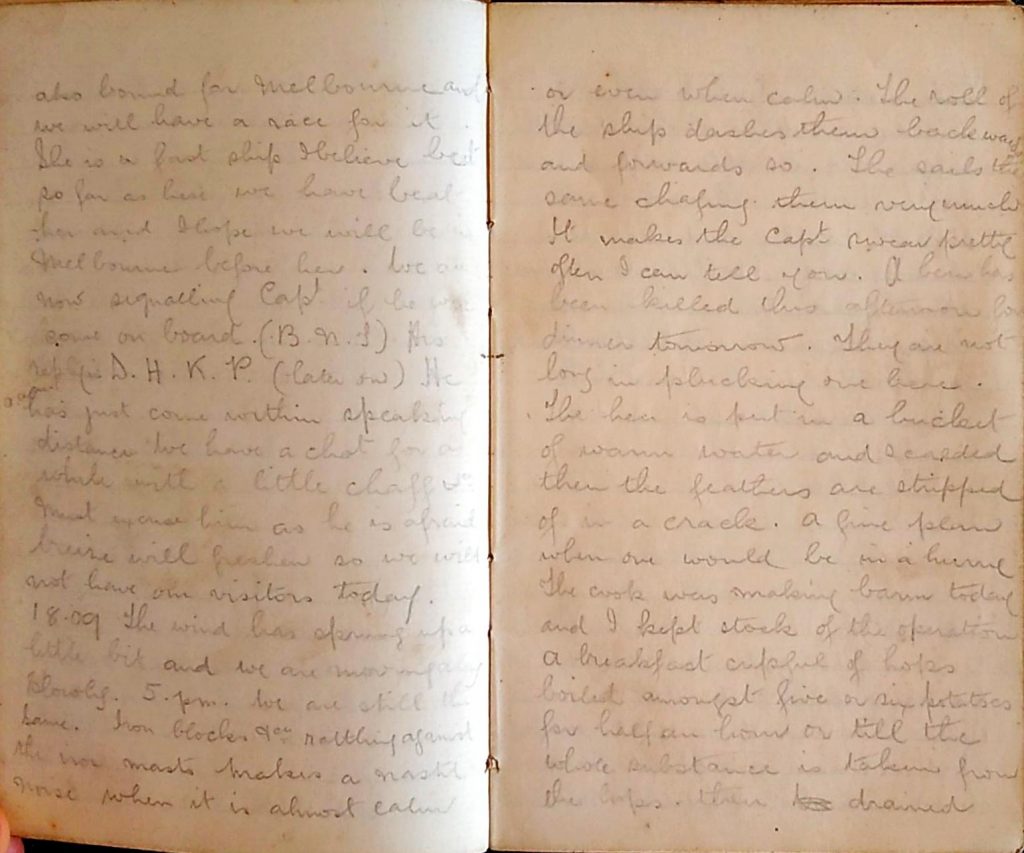 also bound for Melbourne and
we will have a race for it.
She is a fast ship I believe but
so far as here we have beat
her and I hope we will be in
Melbourne before her. We are
now signalling Capt. if he will
come on board. (B. N. S) His
reply is D. H. K. P. (later on) He
has just come within speaking
distance We have a chat for a
while with a little chaff
Must excuse him as he is afraid
breize will freshen so we will
not have our visitors today.
18.09 The wind has sprung up a
little bit and we are moving
slowly. 5. pm. We are still the
same. Iron blocks &c rattling against
the iron masts makes a nasty
noise when it is almost calm
or even when calm. The roll of
the ship dashes them backwards
and forwards so. The sails the
same chafing them very much
It makes the Capt swear pretty
often I can tell you. A hen has
been killed this afternoon for
dinner tomorrow. They are not
long in plucking one here.
The hen is put in a bucket
of warm water and scalded
then the feathers are stripped
of in a crack. A fine plan
when one would be in a hurry
The cook was making barm today
and I kept stock of the operation
A breakfast cupful of hops
boiled amongst five or six potatoes
for half an hour or till the
whole substance is taken from
the hops. then drained